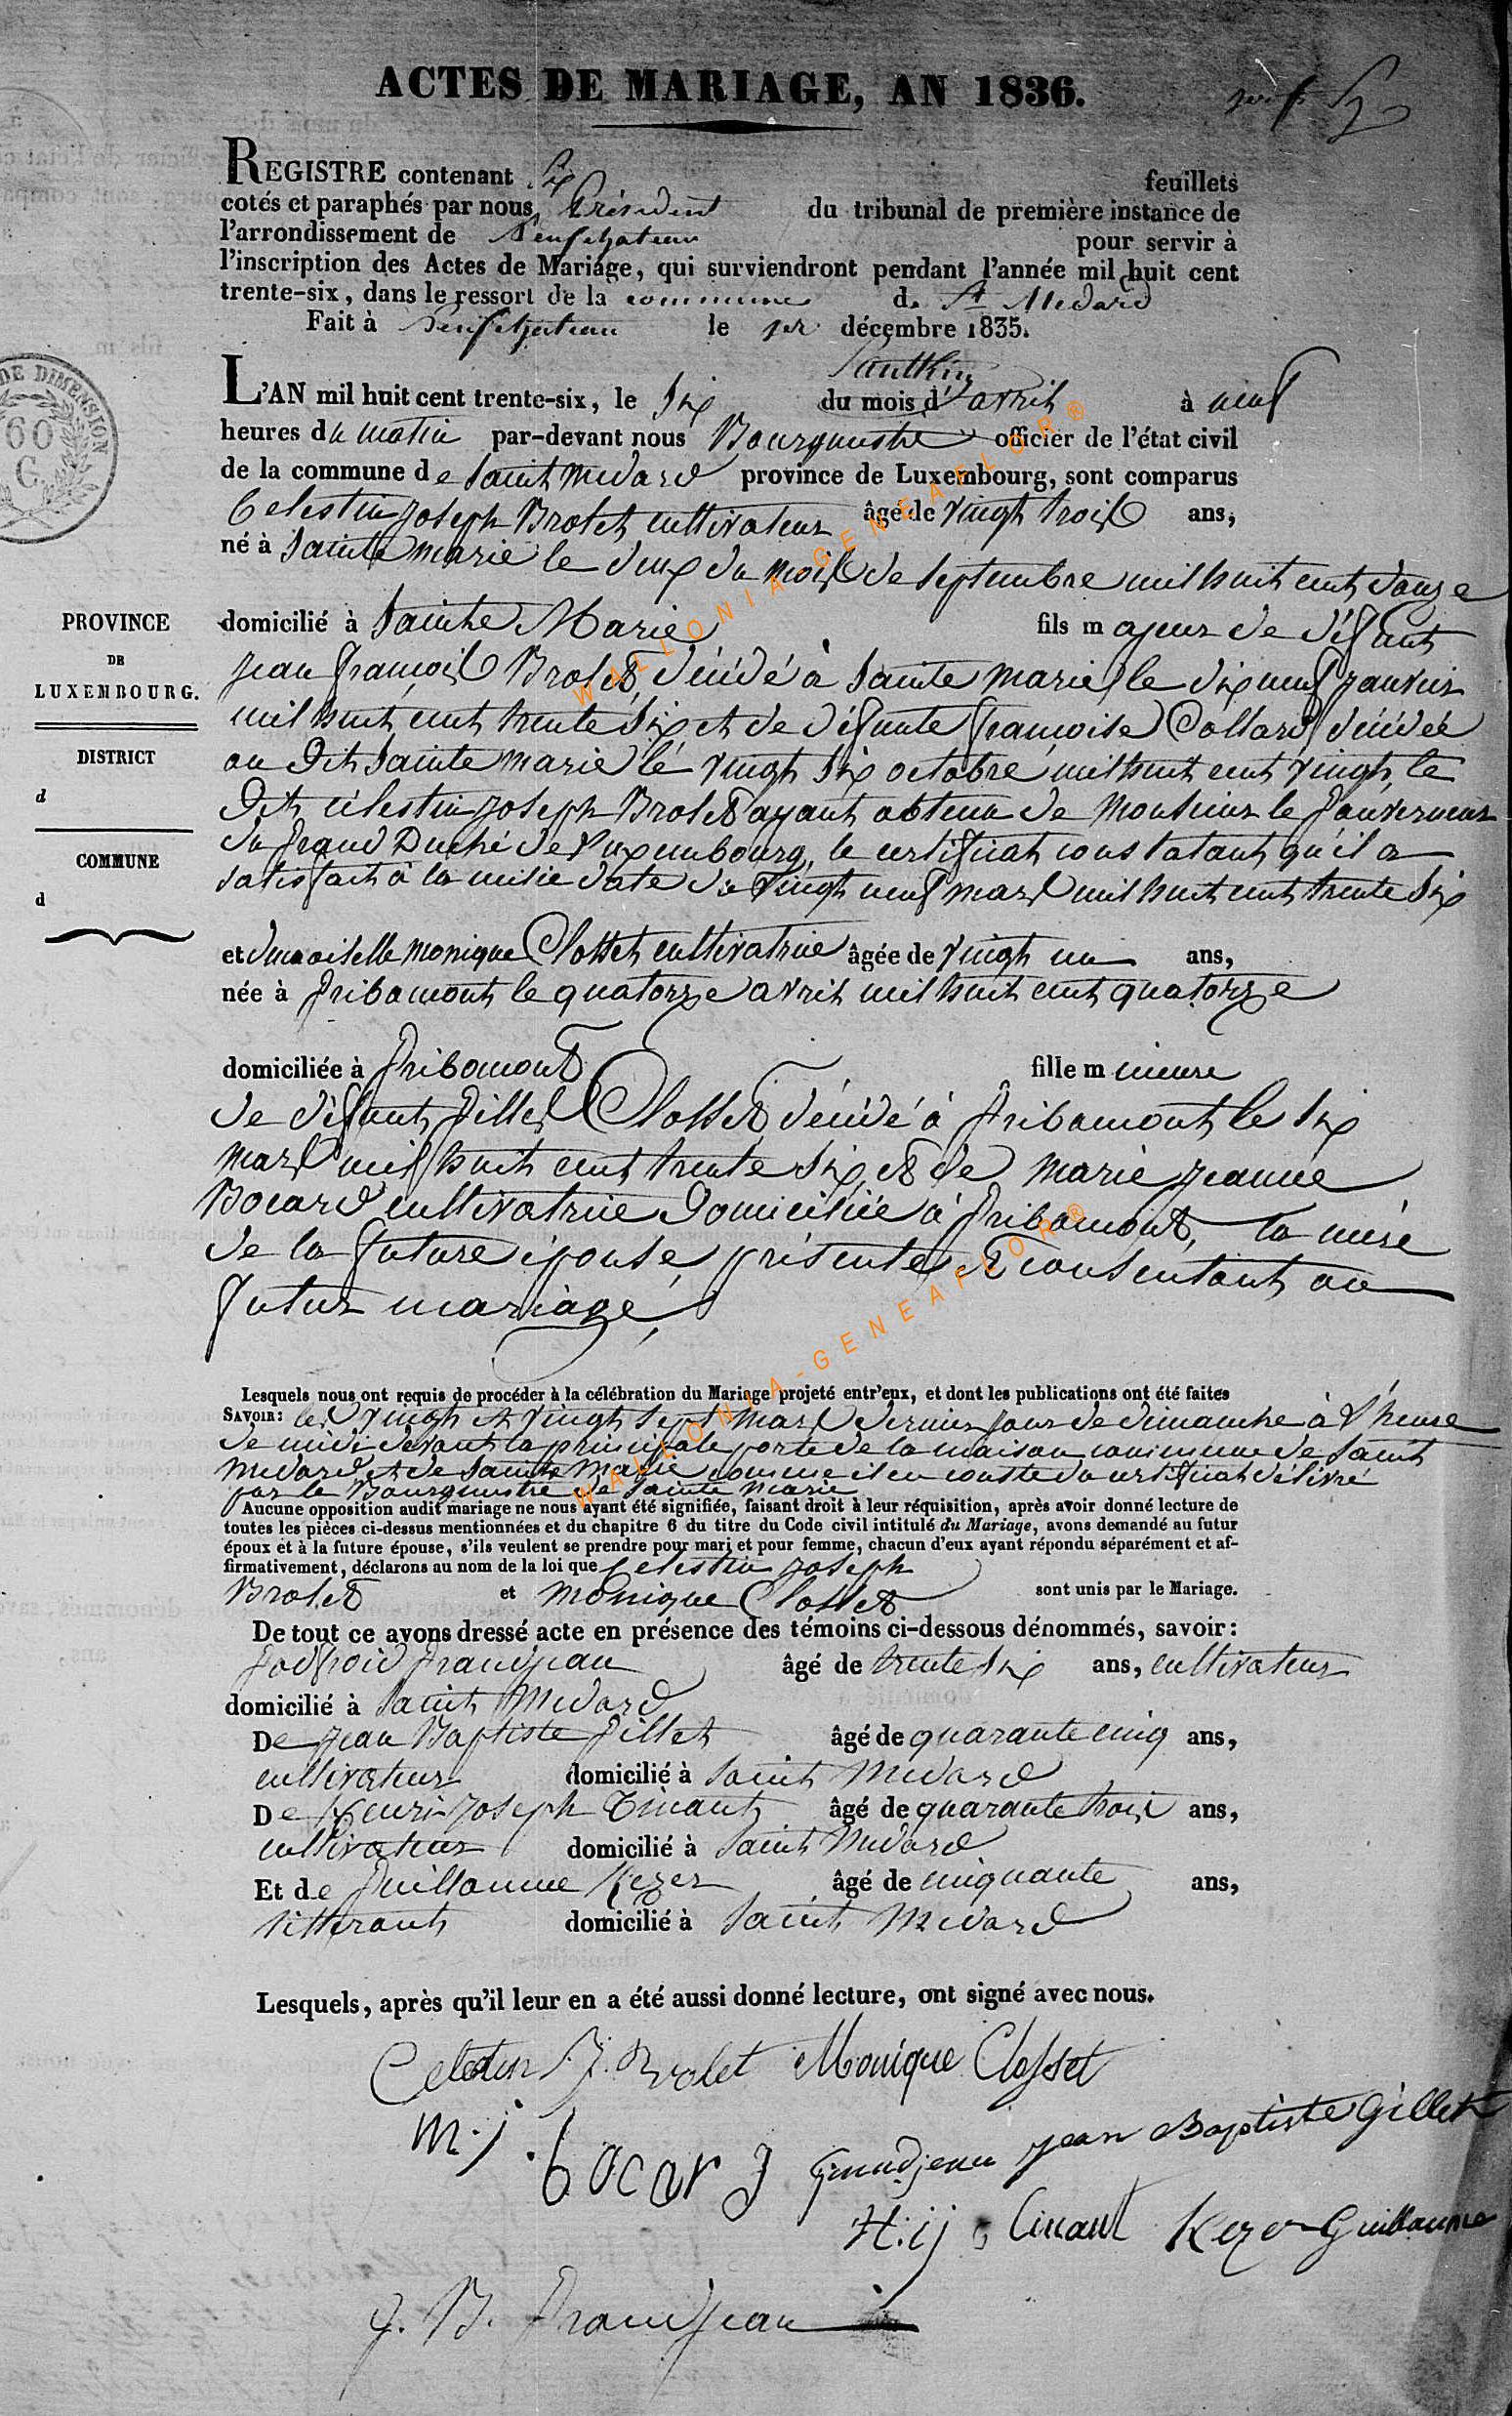 ACTES DE MARIAGE, AN 1836.
REGISTRE contenant six feuillets
cotés et paraphés par nous Président du tribunal de première instance de
l'arrondissement de Neufchateau pour servir à
l'inscription des Actes de Mariage, qui surviendront pendant l'année mil huit cent
trente-six, dans le ressort de la commune de St Medard
Fait à Neufchateau le 1er décembre 1835.
L'AN mil huit cent trente-six, le six du mois d'avril à neuf
heures du matin par-devant nous Bourgmestre officier de l'état civil
de la commune de Saint Medard province de Luxembourg, sont comparus
Celestin Joseph Brolet cultivateur âgé de vingt trois ans,
né à Sainte marie le deux du mois de septembre mil huit cent douze
PROVINCE
DE
LUXEMBOURG.
DISTRICT
d
COMMUNE
d
domicilié à Sainte Marie fils majeur de défunt
jean françois Brolet, décédé à Sainte marie le dix neuf janvier
mil huit cent trente six et de défunte françoise Collard décédée
au dit Sainte marie le vingt six octobre mil huit cent vingt, le
dit célestin joseph Brolet ayant obtenu de Monsieur le Gouverneur
du Grand Duché de Luxembourg, le certificat constatant qu'il a
satisfait à la milice date du vingt neuf mars mil huit cent trente six
et demoiselle monique Closset cultivatrice âgée de vingt un ans,
née à Gribomont le quatorze avril mil huit cent quatorze
domiciliée à Gribomont fille mineure
de défunt Gilles Closset, décédé à Gribomont le six
mars mil huit cent trente six, et de marie jeanne
Bocard cultivatrice domiciliée à Gribomont, la mère
de la future épouse, présente et consentant au
futur mariage,
Lesquels nous ont requis de procéder à la célébration du Mariage projeté entr'eux, et dont les publications ont été faites
SAVOIR: les vingt et vingt sept mars dernier jour de dimanche à l'heure
de midi devant la principale porte de la maison commune de Saint
Medard et de Sainte Marie comme il en conste du certificat délivré
par le Bourgmestre de Sainte Marie
Aucune opposition audit mariage ne nous ayant été signifiée, faisant droit à leur réquisition, après avoir donné lecture de
toutes les pièces ci-dessus mentionnées et du chapitre 6 du titre du Code civil intitulé du Mariage, avons demandé au futur
époux et à la future épouse, s'ils veulent se prendre pour mari et pour femme, chacun d'eux ayant répondu séparément et af-
firmativement, déclarons au nom de la loi que Celestin joseph
Brolet et Monique Closset sont unis par le Mariage.
De tout ce avons dressé acte en présence des témoins ci-dessous dénommés, savoir:
Godfroid Grandjean âgé de trente six ans, cultivateur
domicilié à Saint Medard
De jean Baptiste Gillet âgé de quarante cinq ans,
cultivateur domicilié à Saint Medard
De Henri joseph Tinant âgé de quarante trois ans,
cultivateur domicilié à Saint Medard
Et de Guillaume Kezer âgé de cinquante ans,
domicilié à Saint Medard
Lesquels, après qu'il leur en a été aussi donné lecture, ont signé avec nous.
Celestin J. Brolet Monique Closset
m.j. bocard Grandjean jean Baptiste Gillet
H.ij Tinant Kezer Guillaume
J. B. Grandjean
DE DIMENSION
60
C.
WALLONIA-GENEAFLOR®
WALLONIA-GENEAFLOR®